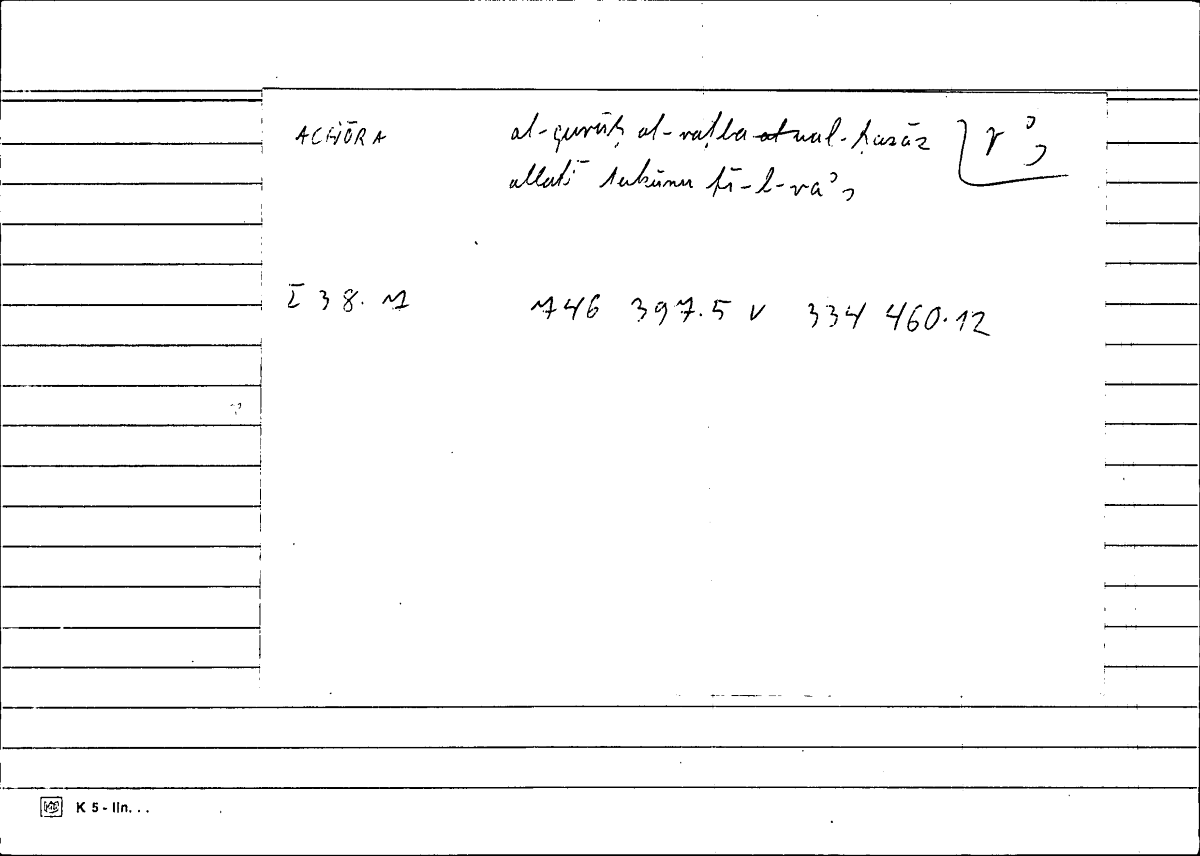 ACHŌRA al-qurūḥ al-raṭba wal-ḥazāz r ʾ s
allatī takūnu fī-l-raʾs
I 38. 746 397.5 v 334 460.12
K 5 - lln. . .